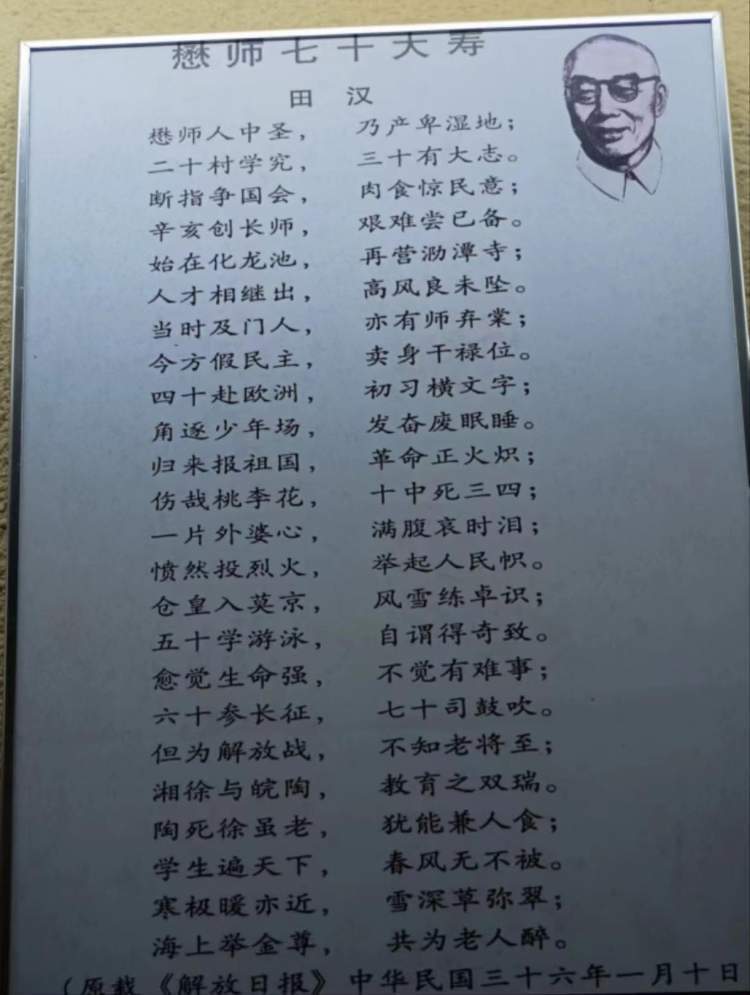 懋师七十大寿
田汉
懋师人中圣， 乃产卑湿地；
二十村学究， 三十有大志。
断指争国会， 肉食惊民意；
辛亥创长师， 艰难尝已备。
始在化龙池， 再营泐潭寺；
人才相继出， 高风良未坠。
当时及门人， 亦有师弃棠；
今方假民主， 卖身干禄位。
四十赴欧洲， 初习横文字；
角逐少年场， 发奋废眠睡。
归来报祖国， 革命正火炽；
伤哉桃李花， 十中死三四；
一片外婆心， 满腹哀时泪；
愤然投烈火， 举起人民帜。
仓皇入莫京， 风雪练卓识；
五十学游泳， 自谓得奇致。
愈觉生命强， 不觉有难事；
六十参长征， 七十司鼓吹。
但为解放战， 不知老将至；
湘徐与皖陶， 教育之双瑞。
陶死徐虽老， 犹能兼人食；
学生遍天下， 春风无不被。
寒极暖亦近， 雪深草弥翠；
海上举金尊， 共为老人醉。
（原载《解放日报》中华民国三十六年一月十日